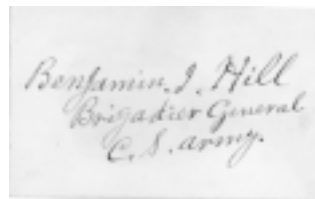 Benjamin. J. Hill
Brigadier General
C. S. army.